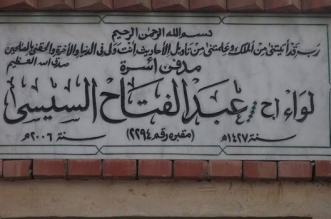 بسم الله الرحمن الرحيم
رب قد آتيتني من الملك وعلمتني من تأويل الأحاديث أنت ولي في الدنيا والآخرة وألحقني بالصالحين
صدق الله العظيم
مدفن أسرة
لواء أ ح / عبد الفتاح السيسي
سنة ١٤٢٧هـ (مقبره رقم ٢٢٩٤) سنة ٢٠٠٦م